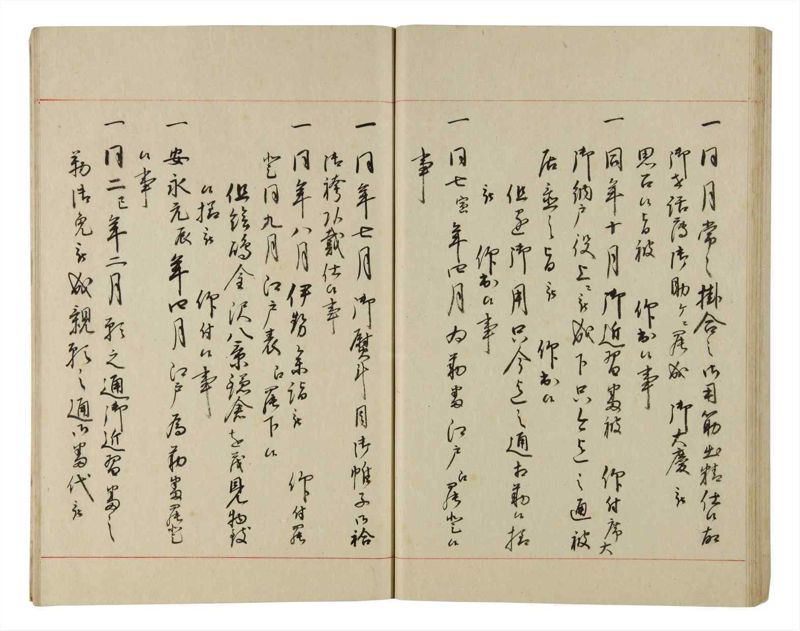 一 同月常々掛合之御用筋出精仕候故
御世話ニ罷成 御大慶ニ
思召候旨被 仰出候事
一 同年十月御近習番被 仰付席大
御納戸役上ニ被成下只今迄之通被
居置之旨被 仰出候
但還御用只今迄之通相勤候様
被 仰出候事
一 同七寅年四月為勤番江戸江罷登候
事
一 同年七月御熨斗目御帷子御袷
御袴頂戴仕候事
一 同年八月伊勢参詣被 仰付罷
登同九月江戸表江罷下候
但鎌倉金沢八景鎌倉迄茂見物致
候様被 仰付候事
一 安永元辰年四月江戸為勤番罷登
候事
一 同二巳年二月願之通御近習番之
勤御免被成親願之通御番代被